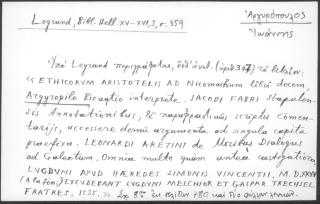 Legrand, Bibl. Hell. XV-XVI, 3, σ. 359
Ἀργυρόπουλος
Ἰωάννης
Ὑπὸ Legrand περιγράφεται, (ἀριθ. 347) τὸ
« ETHICORUM ARISTOTELIS AD Nicomachum libri decem,
Argyropilo Bizantio interprete, JACOBI FABRI Stapulen-
sis Annotationibus, & paraphrasticis scriptis commen-
tarijs, accessere demū argumenta ad singula capita
praefixa. LEONARDI ARETINI de Moribus Dialogus
ad Galeotum. Omnia multo quam antea castigatiora.
LUGDUNI APUD HAEREDES SIMONIS VINCENTII, M.D.XXXV
EXCUDEBANT LUGDUNI MELCHIOR ET GASPAR TRECHSEL
FRATRES, 1535. » 8ον 780 καὶ